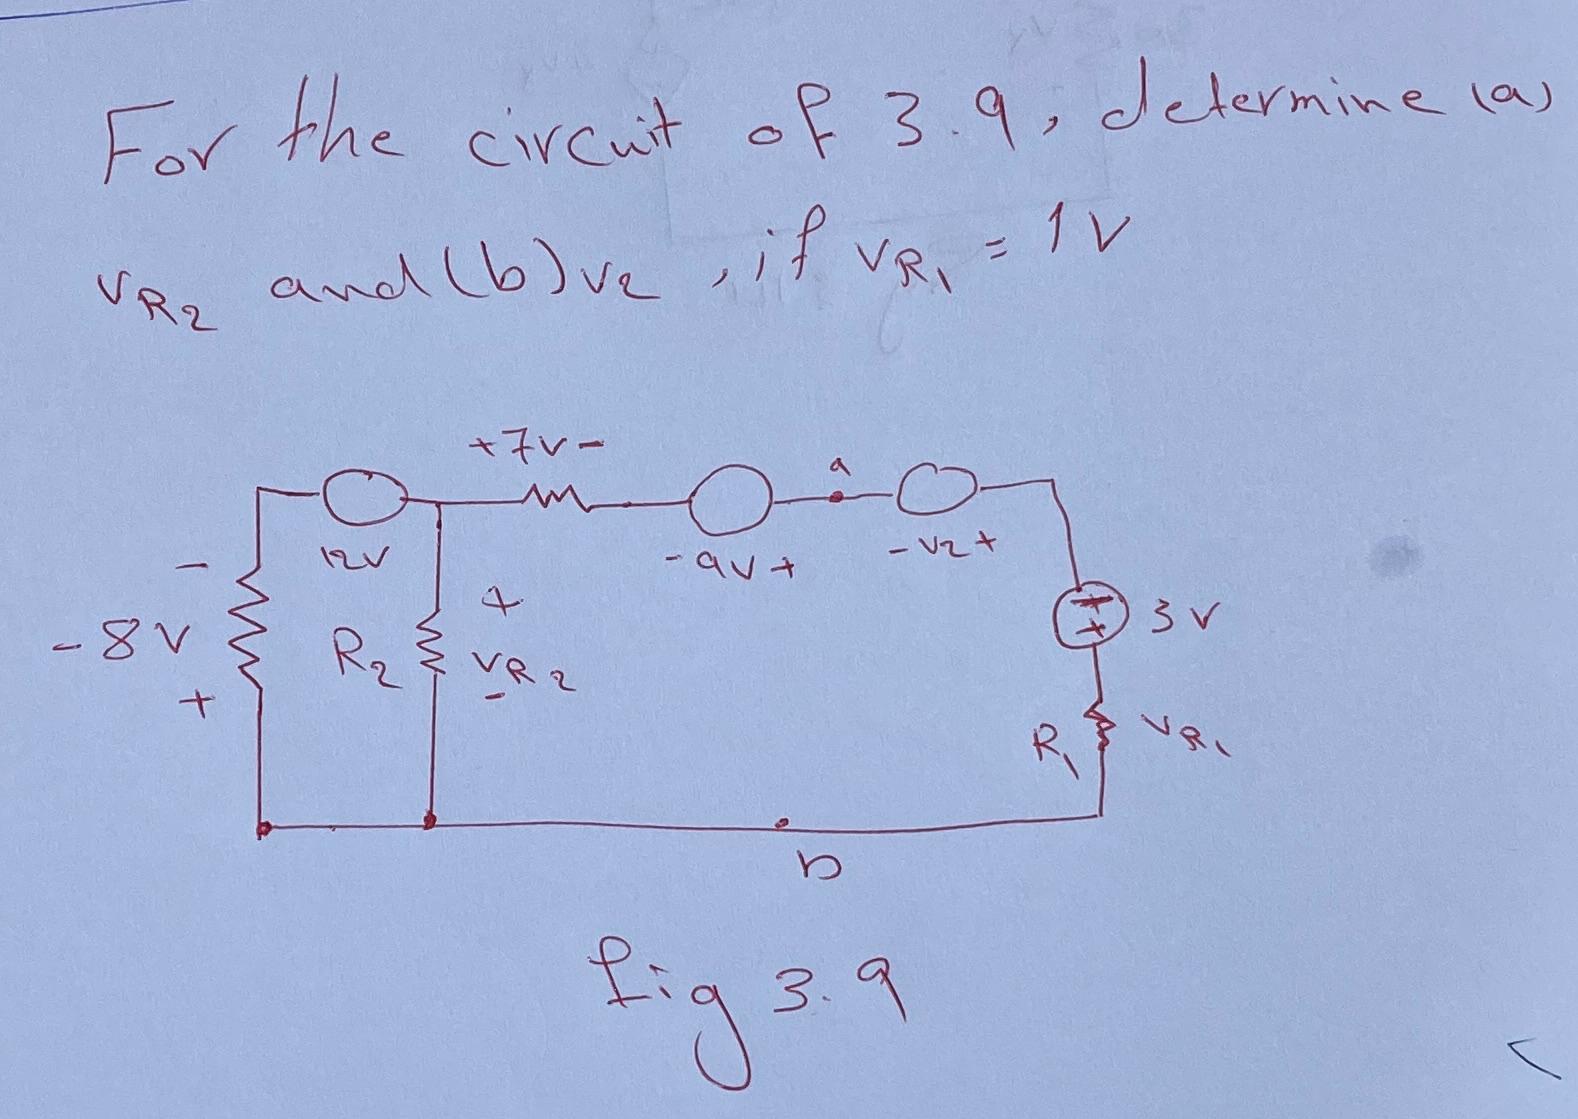 For the circuit of 3.9, determine (a)
vR2 and (b) v2, if vR1 = 1V
+7v-
a
12V
-9V+
-v2+
-
-8V
+
R2
+
vR2
-
3V
R1
vR1
b
fig 3.9